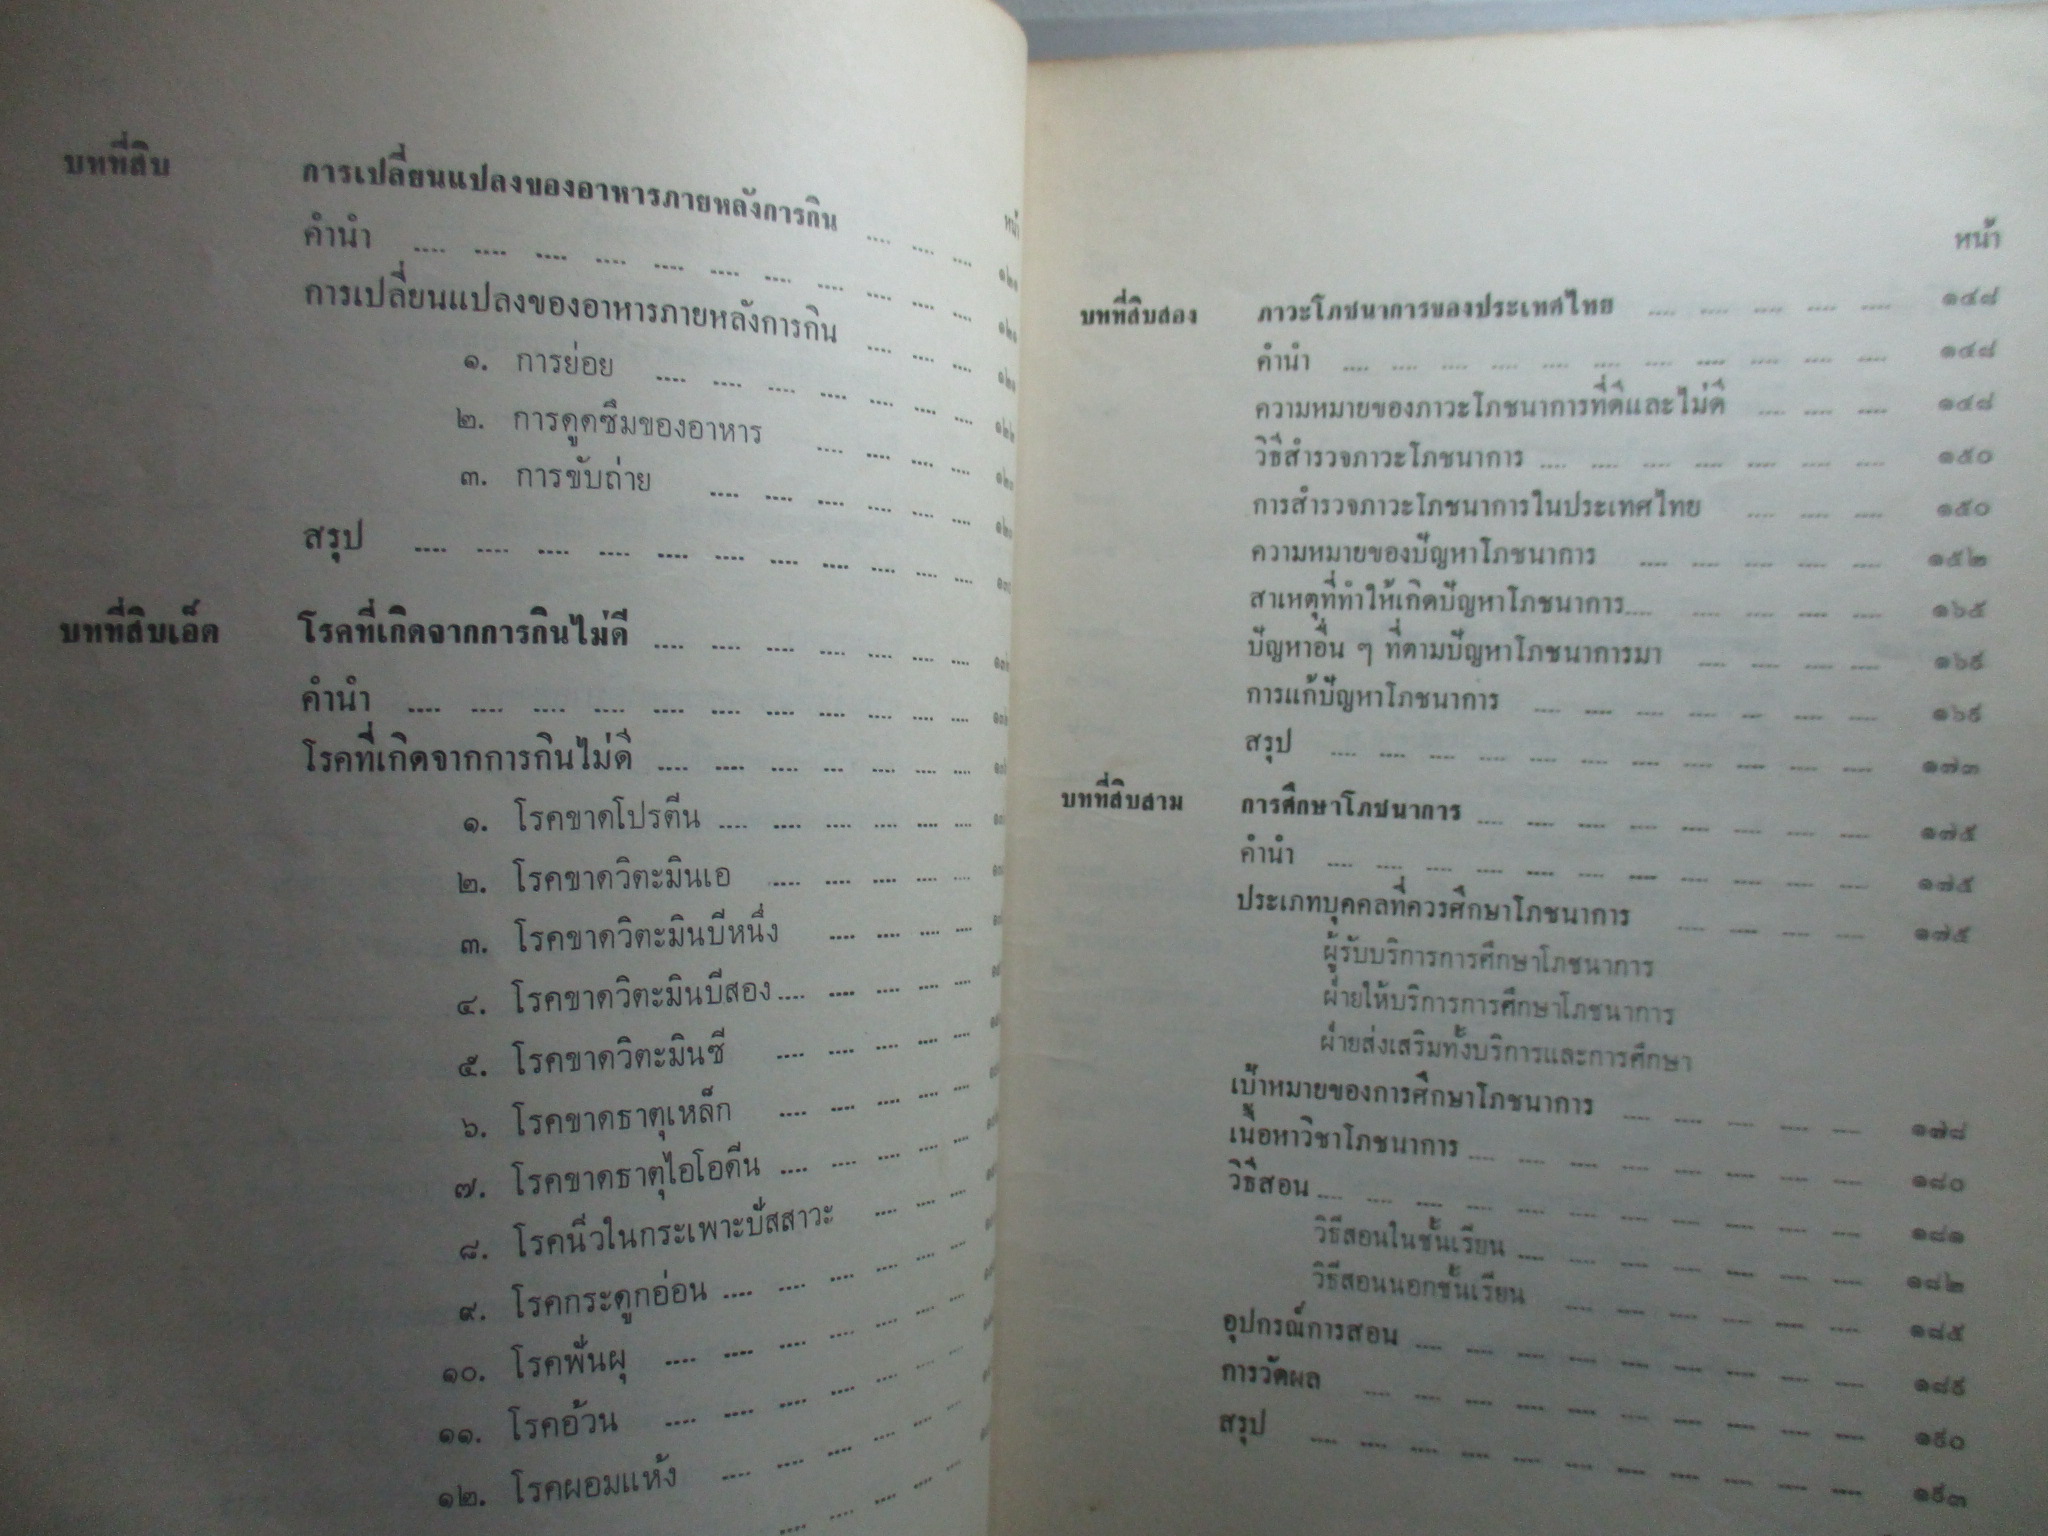 หน้า
บทที่สิบ การเปลี่ยนแปลงของอาหารภายหลังการกิน .... .... ....
คำนำ .... .... .... .... .... .... .... .... .... .... ....
การเปลี่ยนแปลงของอาหารภายหลังการกิน .... .... ....
๑. การย่อย .... .... .... .... .... .... ....
๒. การดูดซึมของอาหาร .... .... .... ....
๓. การขับถ่าย .... .... .... .... .... ....
สรุป .... .... .... .... .... .... .... .... .... .... ....
บทที่สิบเอ็ด โรคที่เกิดจากการกินไม่ดี .... .... .... .... .... .... ....
คำนำ .... .... .... .... .... .... .... .... .... .... ....
โรคที่เกิดจากการกินไม่ดี .... .... .... .... .... .... ....
๑. โรคขาดโปรตีน .... .... .... .... .... ....
๒. โรคขาดวิตะมินเอ .... .... .... .... ....
๓. โรคขาดวิตะมินบีหนึ่ง .... .... .... ....
๔. โรคขาดวิตะมินบีสอง .... .... .... .... ....
๕. โรคขาดวิตะมินซี .... .... .... .... ....
๖. โรคขาดธาตุเหล็ก .... .... .... .... ....
๗. โรคขาดธาตุไอโอดีน .... .... .... .... ....
๘. โรคนิ่วในกระเพาะปัสสาวะ .... .... ....
๙. โรคกระดูกอ่อน .... .... .... .... .... ....
๑๐. โรคฟันผุ .... .... .... .... .... .... ....
๑๑. โรคอ้วน .... .... .... .... .... .... ....
๑๒. โรคผอมแห้ง .... .... .... .... .... ....
หน้า
บทที่สิบสอง ภาวะโภชนาการของประเทศไทย .... .... .... .... .... ๑๔๘
คำนำ .... .... .... .... .... .... .... .... .... .... .... ๑๔๘
ความหมายของภาวะโภชนาการที่ดีและไม่ดี .... .... .... ๑๔๘
วิธีสำรวจภาวะโภชนาการ .... .... .... .... .... .... .... ๑๕๐
การสำรวจภาวะโภชนาการในประเทศไทย .... .... .... ๑๕๐
ความหมายของปัญหาโภชนาการ .... .... .... .... .... ๑๕๒
สาเหตุที่ทำให้เกิดปัญหาโภชนาการ .... .... .... .... .... ๑๖๕
ปัญหาอื่น ๆ ที่ตามปัญหาโภชนาการมา .... .... .... .... ๑๖๙
การแก้ปัญหาโภชนาการ .... .... .... .... .... .... .... ๑๖๙
สรุป .... .... .... .... .... .... .... .... .... .... .... ๑๗๓
บทที่สิบสาม การศึกษาโภชนาการ .... .... .... .... .... .... .... .... ๑๗๕
คำนำ .... .... .... .... .... .... .... .... .... .... .... ๑๗๕
ประเภทบุคคลที่ควรศึกษาโภชนาการ .... .... .... .... ๑๗๕
ผู้รับบริการการศึกษาโภชนาการ
ฝ่ายให้บริการการศึกษาโภชนาการ
ฝ่ายส่งเสริมทั้งบริการและการศึกษา
เป้าหมายของการศึกษาโภชนาการ .... .... .... .... .... ๑๗๘
เนื้อหาวิชาโภชนาการ .... .... .... .... .... .... .... .... ๑๘๐
วิธีสอน .... .... .... .... .... .... .... .... .... .... .... ๑๘๑
วิธีสอนในชั้นเรียน .... .... .... .... .... .... .... ๑๘๒
วิธีสอนนอกชั้นเรียน .... .... .... .... .... .... ๑๘๕
อุปกรณ์การสอน .... .... .... .... .... .... .... .... .... ๑๘๙
การวัดผล .... .... .... .... .... .... .... .... .... .... ๑๙๐
สรุป .... .... .... .... .... .... .... .... .... .... .... ๑๙๓